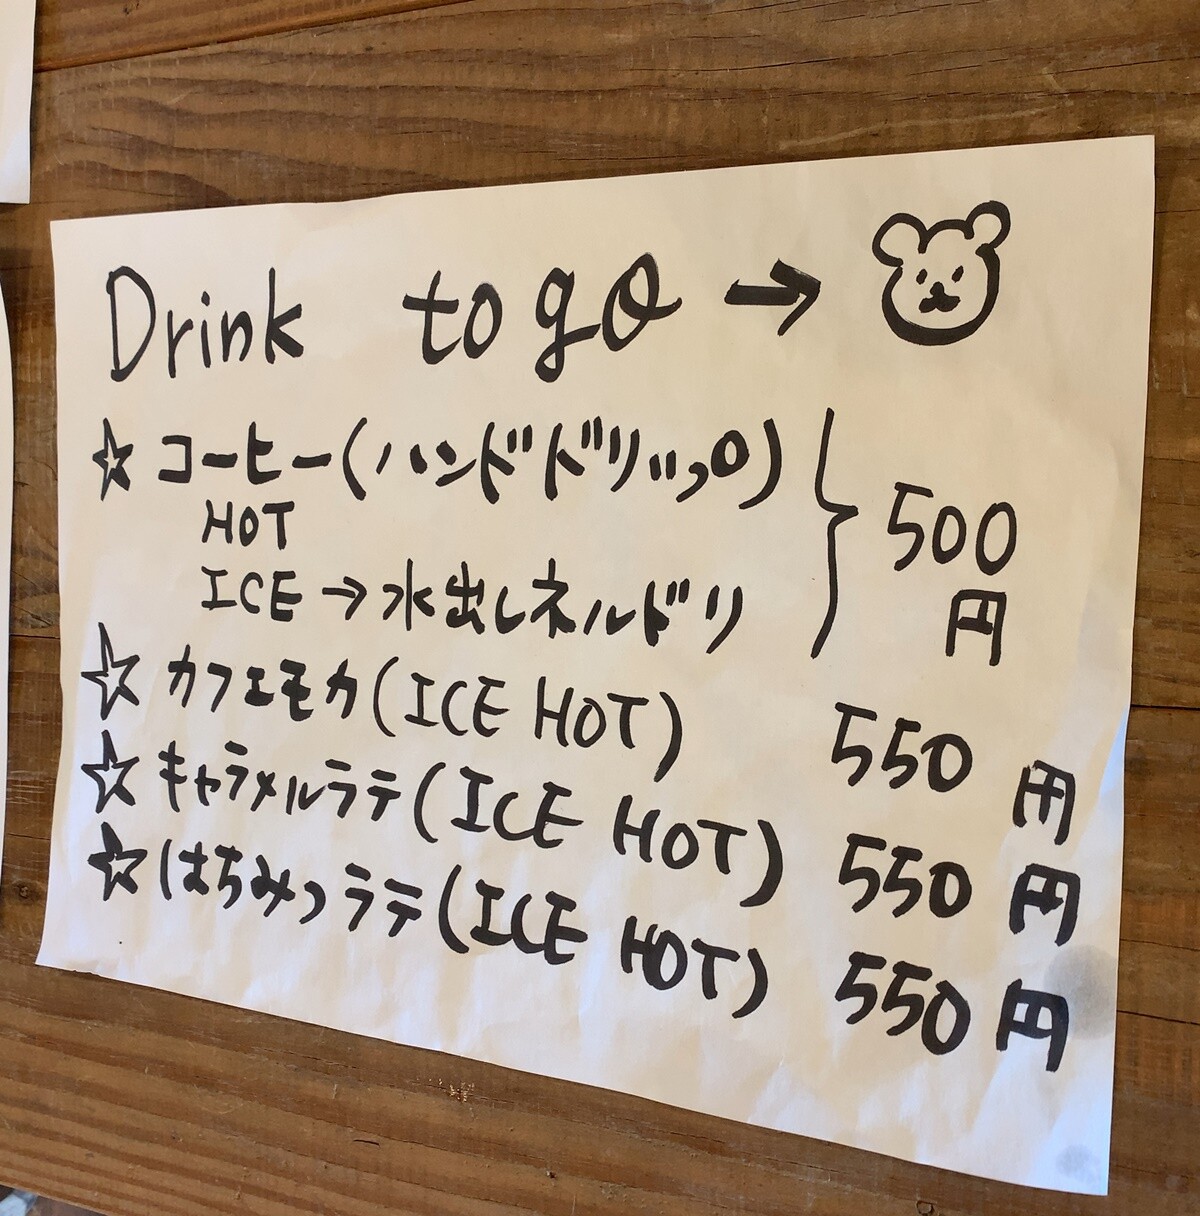 Drink to go →
☆ コーヒー(ハンドドリップ) 500円
HOT
ICE → 水出しネルドリ
☆ カフェモカ(ICE HOT) 550円
☆ キャラメルラテ(ICE HOT) 550円
☆ はちみつラテ(ICE HOT) 550円